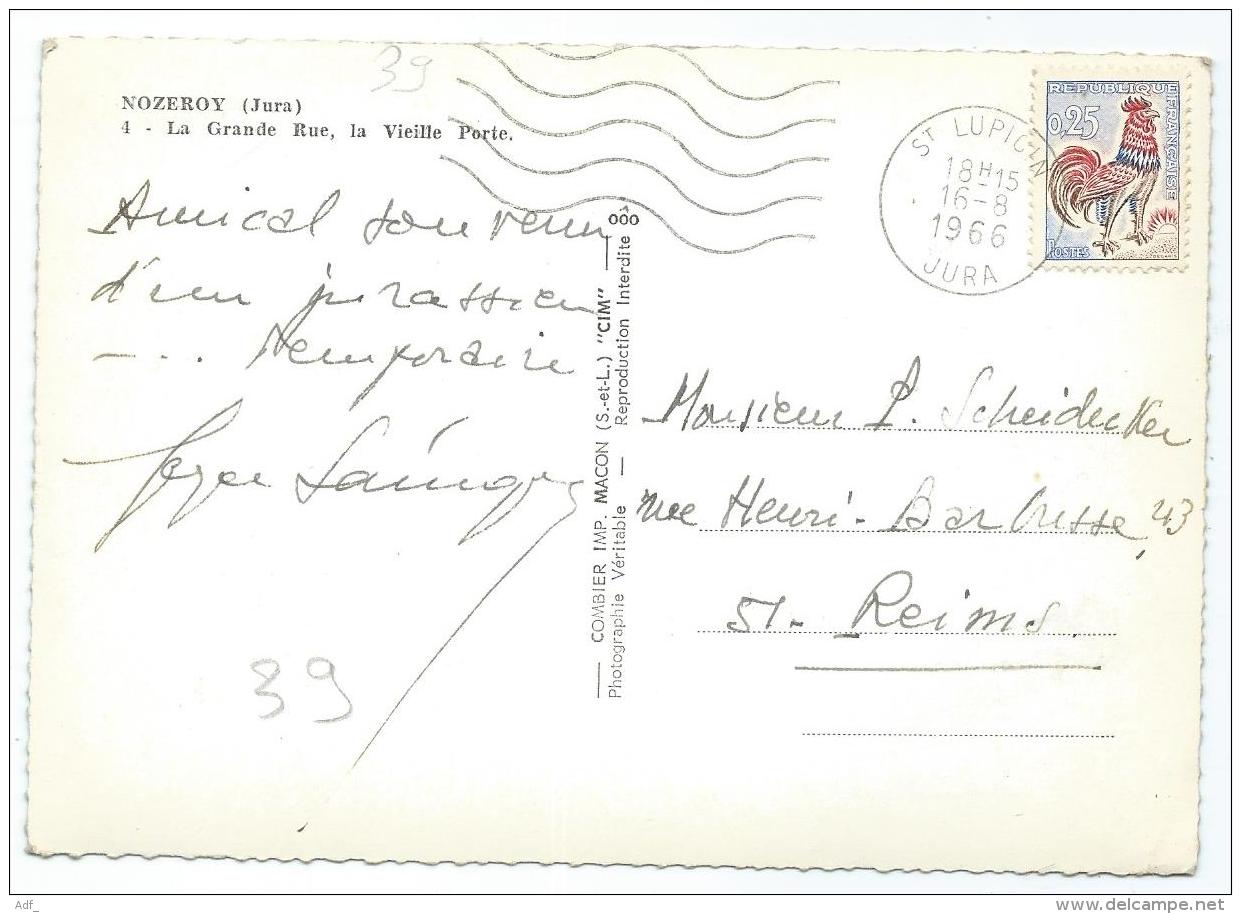 39
NOZEROY (Jura)
4 - La Grande Rue, la Vieille Porte.
Amical souvenir
d'un jurassien
- ... temporaire
39
COMBIER IMP. MACON (S.-et-L.) "CIM"
Photographie Véritable — Reproduction Interdite
ST LUPICIN
18H15
16-8
1966
JURA
REPUBLIQUE FRANÇAISE
0,25
POSTES
DECARIS
Monsieur P. Scheidecker
rue Henri-Barbusse, 43
51- Reims
Adf_
delcampe.net